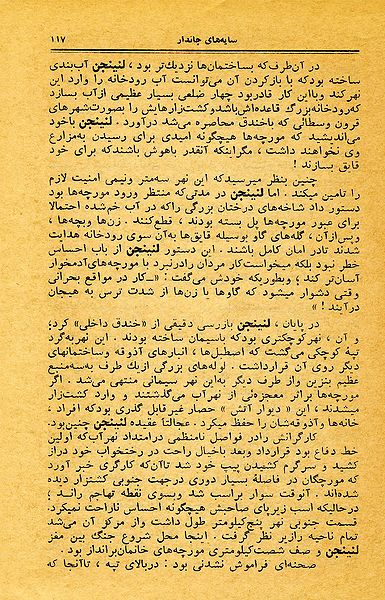 سایه‌های جاندار ۱۱۷
در آن‌طرف که بساختمان‌ها نزدیك‌تر بود ، لنینجن آب‌بندی
ساخته بودکه با بازکردن آن می‌توانست آب رودخانه را وارد این
نهر کند وبااین کار قادربود چهار ضلعی بسیار عظیمی ازآب بسازد
که‌رودخانه‌بزرگ قاعده‌اش‌باشدوکشت‌زارهایش را بصورت‌شهرهای
قرون وسطائی که باخندق محاصره می‌شد درآورد . لنینجن باخود
می‌اندیشید که مورچه‌ها هیچگونه امیدی برای رسیدن به‌مزارع
وی نخواهند داشت ، مگراینکه آنقدر باهوش باشندکه برای خود
قایق بسازند !
چنین بنظر میرسیدکه این نهر سه‌متر ونیمی امنیت لازم
را تامین میکند . اما لنینجن در مدتی‌که منتظر ورود مورچه‌ها بود
دستور داد شاخه‌های درختان بزرگی راکه در آب خم‌شده احتمالا
برای عبور مورچه‌ها پل بسته بودند ، قطع‌کنند . زن‌ها وبچه‌ها ،
وپس‌ازآن ، گله‌های گاو بوسیله قایق‌ها به‌آن سوی رودخانه هدایت
شدند تادر امان کامل باشند . این دستور لنینجن از باب احساس
خطر نبود بلکه میخواست‌کار مردان رادرنبرد با مورچه‌های‌آدمخوار
آسان‌تر کند ؛ وبطوریکه خودش می‌گفت : «ــکار در مواقع بحرانی
وقتی دشوار میشود که گاوها یا زن‌ها از شدت ترس به هیجان
درآیند ! »
در پایان ، لنینجن بازرسی دقیقی از «خندق داخلی» کرد؛
و آن ، نهرکوچکتری بودکه باسیمان ساخته بودند . این نهربه‌گرد
تپه کوچکی می‌گشت که اصطبل‌ها ، انبارهای آذوقه وساختمانهای
دیگر روی آن قرارداشت . لوله‌های بزرگی ازیك طرف به‌سه‌منبع
عظیم بنزین واز طرف دیگر به‌این نهر سیمانی منتهی می‌شد . اگر
مورچه‌ها براثر معجزه‌ئی از نهرآب می‌گذشتند و وارد کشت‌زار
میشدند ، این « دیوار آتش » حصار غیرقابل گذری بودکه افراد ،
خانه‌ها وآذوقه‌شان را حفظ میکرد . عجالتاً عقیده لنینجن چنین‌بود.
کارگرانش رادر فواصل نامنظمی درامتداد نهرآب‌که اولین
خط دفاع بود قرارداد وبعد باخیال راحت در رختخواب خود دراز
کشید و سرگرم کشیدن پیپ خود شد تاآن‌که کارگری خبر آورد
که مورچگان در فاصلهٔ بسیار دوری درجهت جنوبی کشتزار دیده
شده‌اند . آنوقت سوار براسب شد وبسوی نقطه تهاجم راند ؛
درحالیکه اسب زیرپای صاحبش هیچگونه احساس ناراحت نمیکرد.
قسمت جنوبی نهر پنج‌کیلومتر طول داشت واز مرکز آن می‌شد
تمام ناحیه رازیر نظر گرفت . اینجا محل شروع جنگ بین مغز
لنینجن و صف شصت‌کیلومتری مورچه‌های خانمان‌برانداز بود .
صحنه‌ای فراموش نشدنی بود : دربالای تپه ، تاآنجا که